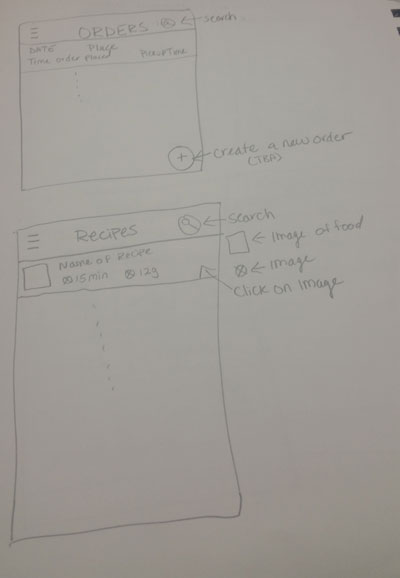 ORDERS
search
DATE Place
Time order placed Pickup Time
+
create a new order
(TBA)
Recipes
search
Name of Recipe
15 min 12g
Image of food
Image
Click on Image